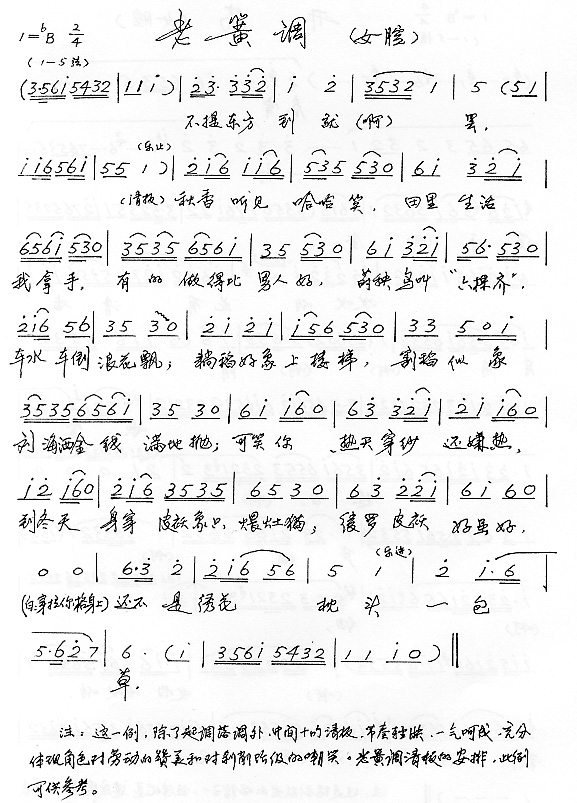 1=ᵇB 2/4 老簧调 (女腔)
(1—5弦)
(3·56i 5432 | 1 1 i ) | 2 3· 3 3 2 | i 2 | 3532 1 | 5 (51 |
不提东方 到 就 (啊) 罢,
i i 6 5 6 i | 5 5 1 ) | 2 i 6 i i 6 | 5 3 5 5 3 0 | 6 i 3 2 i |
(乐止)
(清板) 秋香 听见 哈哈 笑, 田里 生活
6 5 6 i 5 3 0 | 3 5 3 5 6 5 6 i | 3 5 5 3 0 | 6 i 3 2 i | 5 6· 5 3 0 |
我拿手, 有的 做得比 男人好, 莳秧鸟叫 "六棵齐",
2 i 6 5 6 | 3 5 3 0 | 2 i 2 i | i 5 6 5 3 0 | 3 3 5 0 i |
车水 车倒 浪花飘; 耥稻好象 上楼梯, 割稻 似 象
3 5 3 5 6 5 6 i | 3 5 3 0 | 6 i i 6 0 | 6 3 3 2 i | 2 i i 6 0 |
刘海洒金钱 满地抛; 可笑你 热天穿纱 还嫌热,
i 2 i 6 0 | 2 i 6 3 5 3 5 | 6 5 3 0 | 6 3 2 2 i | 6 i 6 0 |
到冬天 身穿 皮袄象只 煨灶猫; 绫罗 皮袄 好虽好,
0 0 | 6·3 2 | 2 i 6 5 6 | 5 1 | 2 i·6 |
(乐进)
(白:穿拉你格身上) 还不 是绣花 枕 头 一 包
5·6 2 7 | 6· ( i | 3 5 6 i 5 4 3 2 | 1 1 i 0 ) ‖
草.
注: 这一例, 除了起调落调外, 中间十的清板, 节奏轻快, 一气呵成, 充分
体现角色对劳动的赞美和对剥削阶级的嘲笑。老簧调清板的安排, 此例
可供参考。